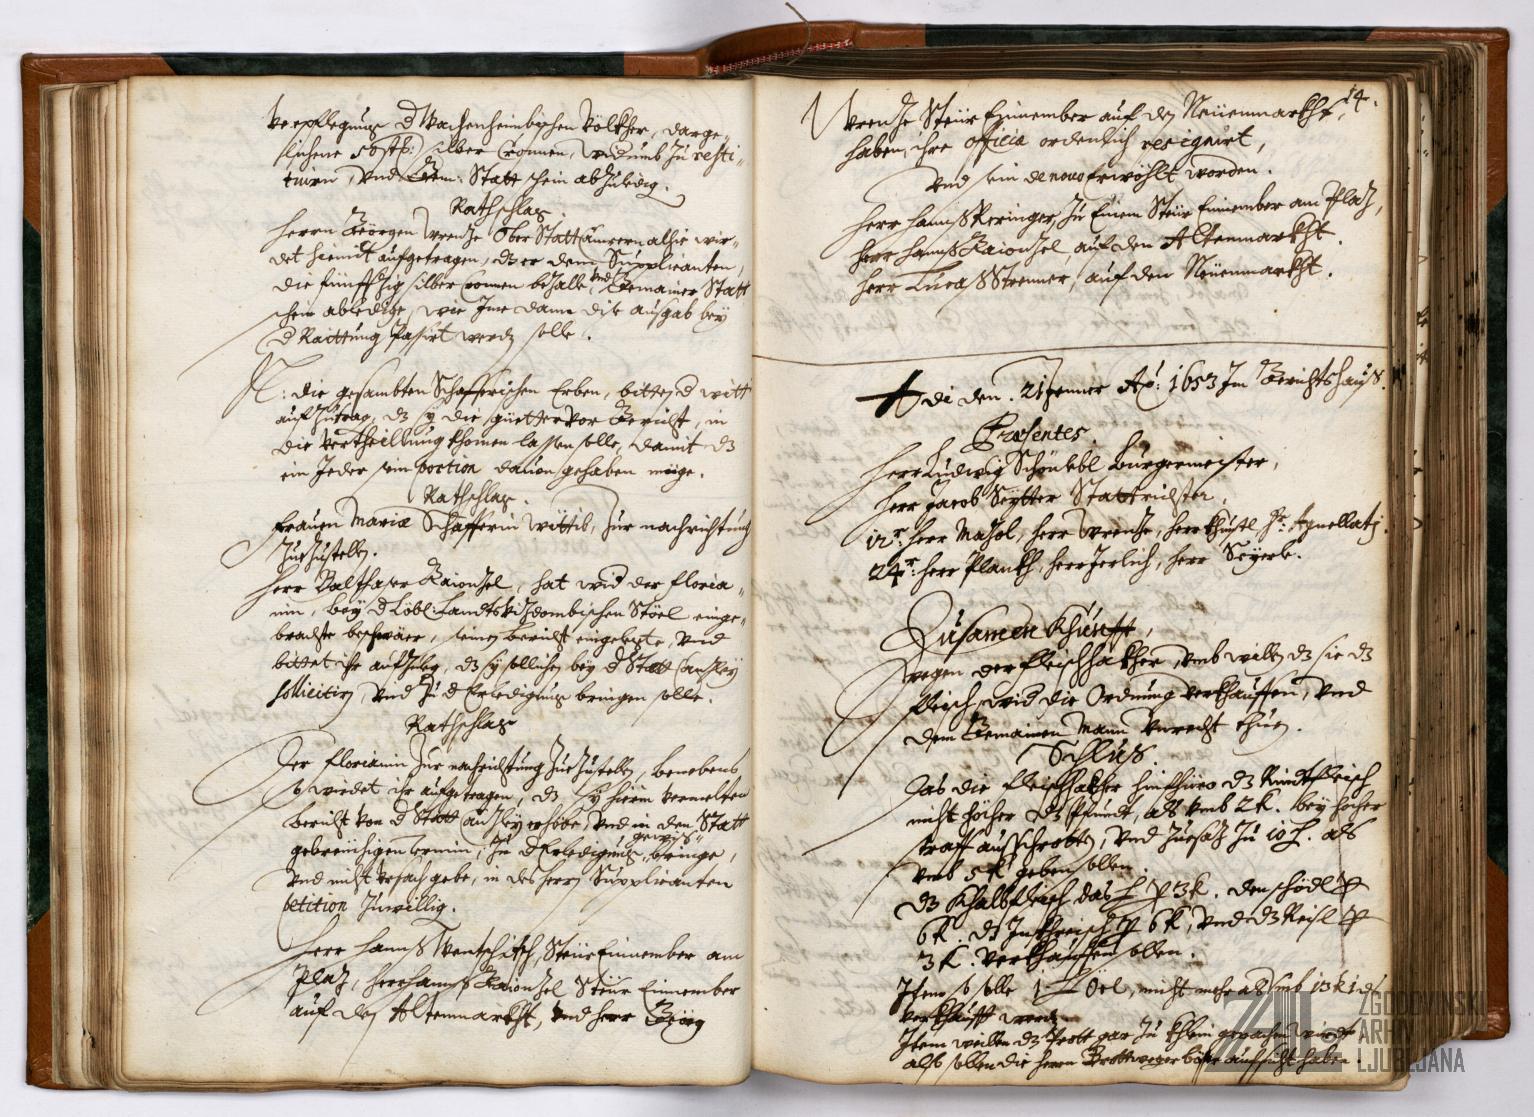 Verpflegung d Wachenheimbischen Völkher, darge-
lichene 50 stkh: silber Cronnen, widumb zu resti-
tuirn, Vnd Gem: Statt schein abzuledig.
Rathschlag.
Herrn Geörgen Wrenze Ober Stattcamrern alhie wir-
det hiemit aufgetragen, dz er dem Supplicanten,
die fünffzig silber Cronnen bezalle, vnd Gemainer Statt
schein abledige, wie Ime dann dise ausgab bey
d Raittung Passirt werdn solle.
N: die gesambten Schafferischen Erben, bitten d witt
auf Zutrag, dz sy die güetter vor Gericht, in
die Vertheillung khomen lassen solle, damit dz
ein Jeder sein portion dauon gehaben müge.
Rathschlag.
Frauen Maria Schafferin wittib, zur nachrichtung
zuezustelln.
Herr Balthaser Kaionzel, hat wid der Floria-
nin, bey d Löbl: Landts Vizdombischen Stöel einge-
brachte beschwär, seinen bericht eingelegte, Vnd
bittet ihr aufzulg, dz sy solliches bey d Statt Canzley
sollicitirn, Vnd zu d Erledigung bringen solle.
Rathschlag
Der Florianin zur nachrichtung zuezustelln, benebens
so wirdet ihr aufgetragen, dz sy hierin vermelten
bericht von d Statt Canzley erhöbe, Vnd in den Statt
gebreichigen termin, zu d Erledigung gewiss bringe,
Vnd nicht Vrsach gebe, in des Herrn Supplicanten
petition zuwillig.
Herr Hannß Wentschitsch, Steür Einnember am
Plaz, Herr Hannß Kaionzel Steür Einnember
auf dem Altenmarkht, Vnd Herr Geörg
14.
Wrenze Steür Einnember auf den Neüenmarkht,
haben, ihre officia ordenlich resignirt,
Vnd sein de nouo Erwöhlt worden.
Herr Hannß Reringer, zu Einem Steür Einnember am Plaz,
Herr Hannß Kaionzel, auf den Altenmarkht.
Herr Lucaß Strenner, auf den Neüenmarkht.
Adi den. 21 Jenner Aō: 1653 Im Gerichtshauß.
Præsentes.
Herr Ludwig Schönlebl Burgermeister,
Herr Jacob Seÿtter Stattrichter,
12r: Herr Mahol, Herr Wrenze, Herr Khüstl, Hr: Agnellatj.
24r: Herr Plankh, Herr Jerlich, Herr Seÿerle.
Zusamen Khunfft,
wegen der fleischhakher, vmb willn dz sie dz
fleisch, wid die Ordnung Verkhauffen, Vnd
dem Gemainen Mann Vnrecht thuen.
Schlus.
Das die fleischhakher hinfhüro dz Rindtfleisch
nicht höcher dz Pfundt, als vmb 2 K. bey hocher
straff ausschrotten, Vnd zuesaz zu 10 L. als
vmb 5 K geben sollen.
dz Khalbfleisch das L p 3 K. den schödl p
6 K. ds Inkhreisch p 6 K, Vnd dz Reisl p
3 K. Verkhauffen sollen.
Item so solle 1 L Oel, nicht mehr als vmb 13 K
Verkhaufft werdn
Item weillen dz Prott gar zu khlein gepachen wirdt
als sollen die Herrn Brottweger bösser aufsicht haben.
ZGODOVINSKI
ARHIV
LJUBLJANA